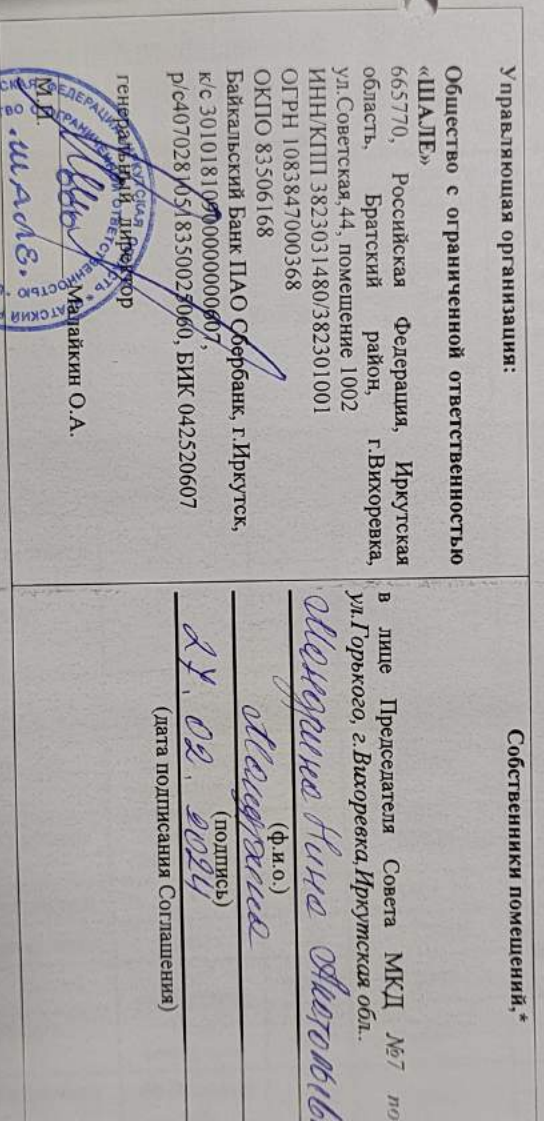 Управляющая организация:
Общество с ограниченной ответственностью
«ШАЛЕ»
665770, Российская Федерация, Иркутская
область, Братский район, г.Вихоревка,
ул.Советская,44, помещение 1002
ИНН/КПП 3823031480/382301001
ОГРН 1083847000368
ОКПО 83506168
Байкальский Банк ПАО Сбербанк, г.Иркутск,
к/с 30101810900000000607,
р/с40702810518350025060, БИК 042520607
генеральный директор
Малайкин О.А.
М.П.
«ШАЛЕ»
Собственники помещений,*
в лице Председателя Совета МКД №7 по
ул.Горького, г.Вихоревка,Иркутская обл..
Нина
(ф.и.о.)
(подпись)
27.02.2024
(дата подписания Соглашения)